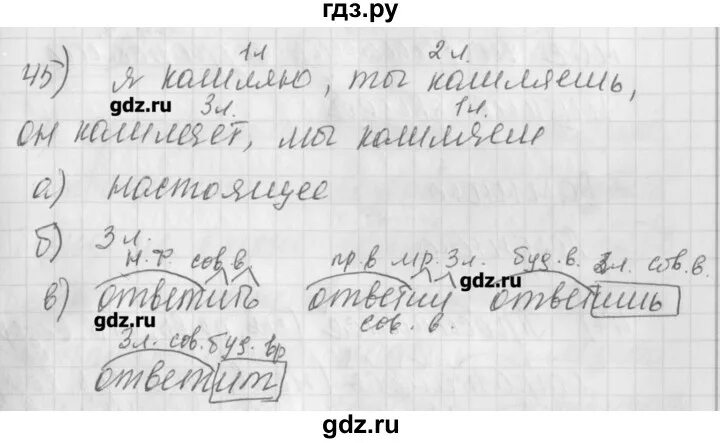 гдз.ру
1л. 2л.
45) я кашляю, ты кашляешь,
gdz.ru 3л. 1л.
он кашляет, мы кашляем
а) настоящее
б) 3л.
н.ф. сов.в. пр.в мр. 3л. буд.в. 2л. сов.в.
gdz.ru
в) ответить ответил ответишь
gdz.ru сов.в.
3л. сов. буд. вр
ответит
gdz.ru